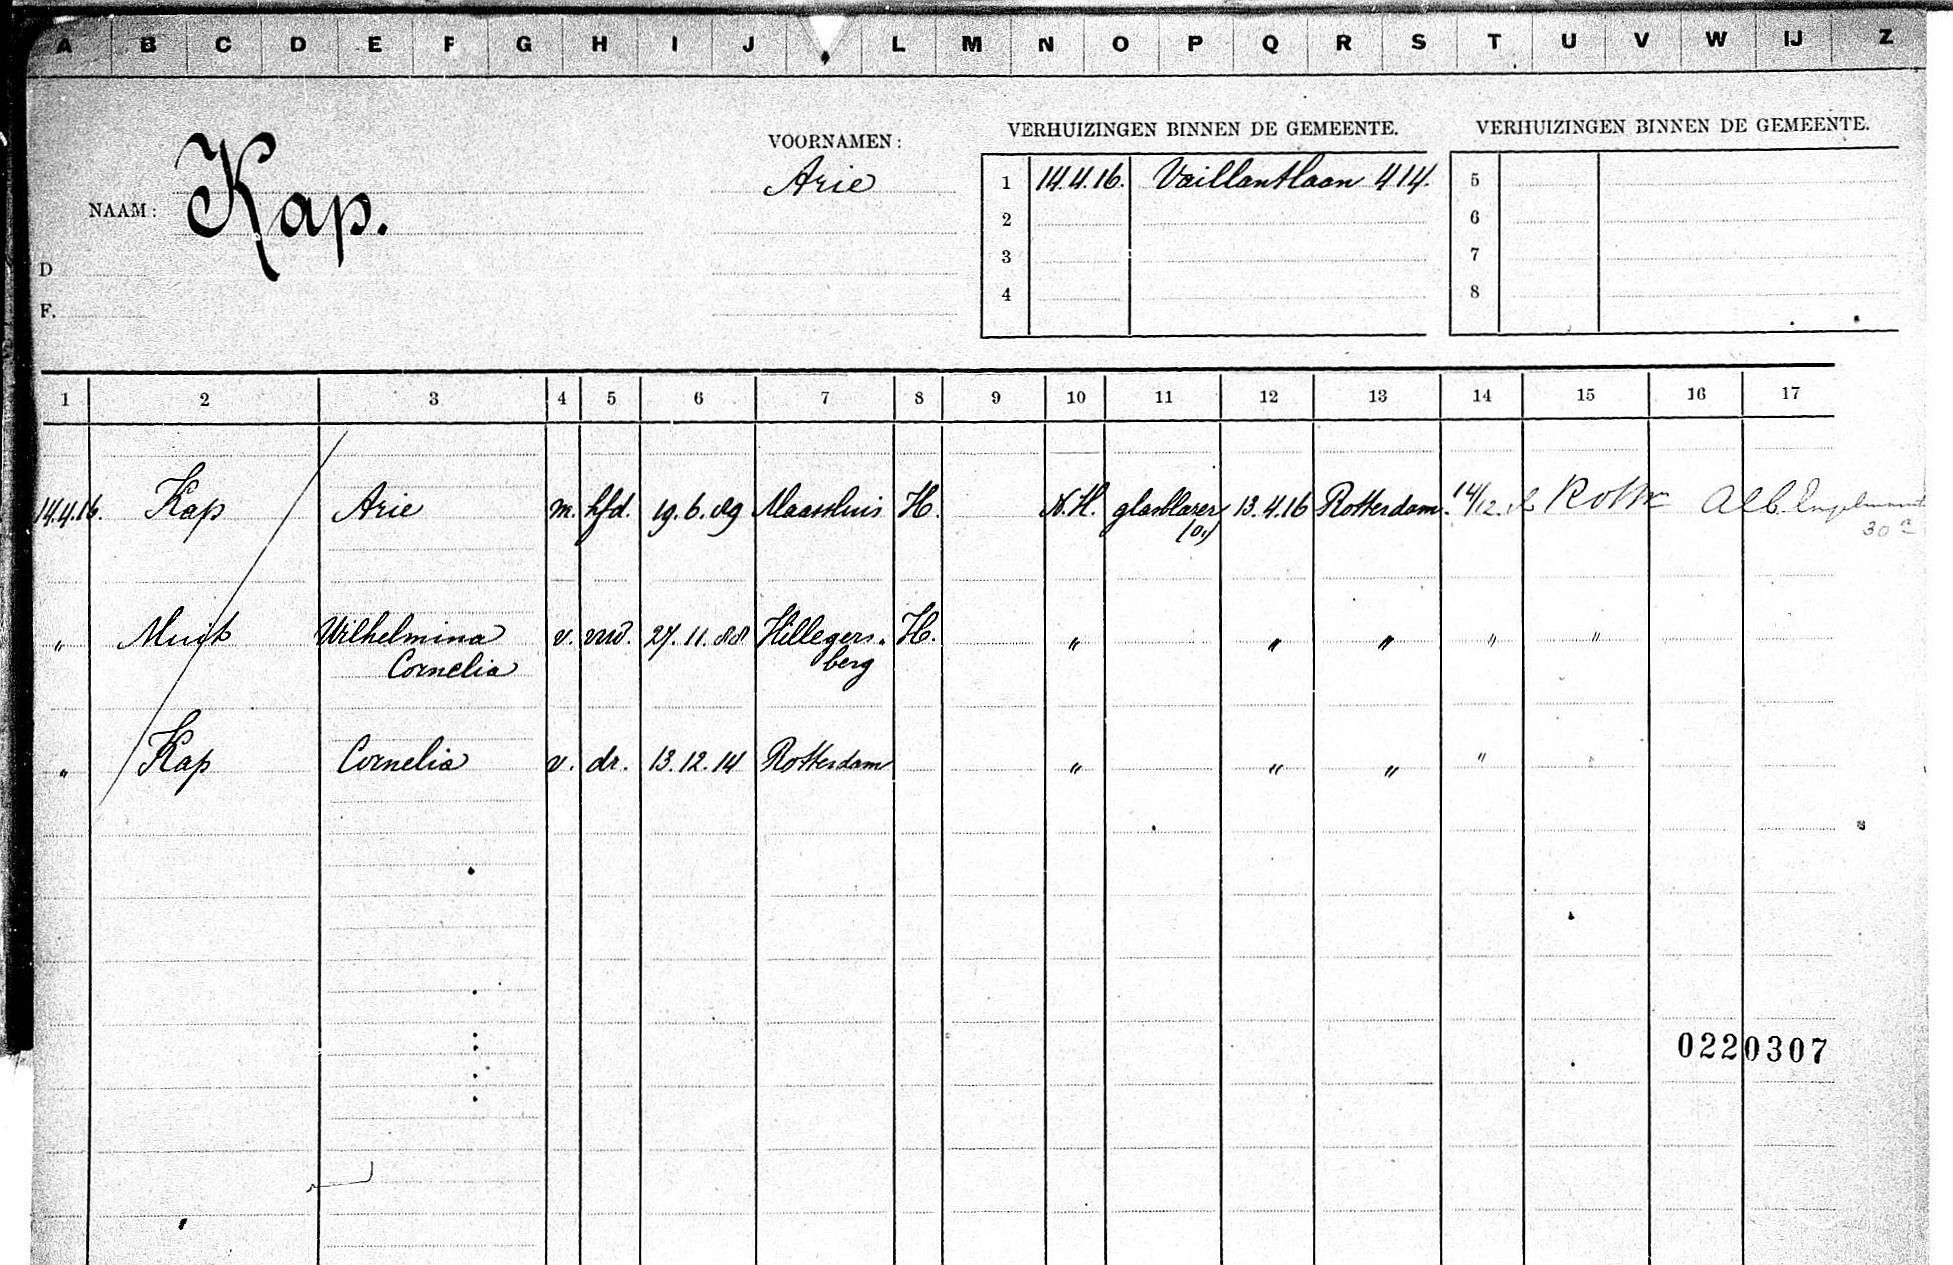 A B C D E F G H I J L M N O P Q R S T U V W IJ Z
VERHUIZINGEN BINNEN DE GEMEENTE. VERHUIZINGEN BINNEN DE GEMEENTE.
VOORNAMEN:
Arie
NAAM: Kap.
D
F.
1 14.4.16. Vaillantlaan 414.
2
3
4
5
6
7
8
1 2 3 4 5 6 7 8 9 10 11 12 13 14 15 16 17
14.4.16. Kap Arie m. hfd. 19.6.89 Maassluis H. N.H. glasblazer 13.4.16 Rotterdam. 14/12 Rott
(o.)
30
" Muik Wilhelmina v. vrw. 27.11.88 Hillegers- H. " " " " "
Cornelia berg
" Kap Cornelia v. dr. 13.12.14 Rotterdam " " " " "
0220307